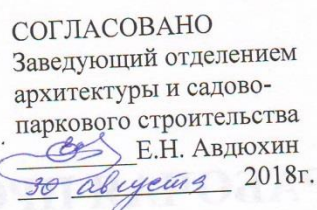 СОГЛАСОВАНО
Заведующий отделением
архитектуры и садово-
паркового строительства
Е.Н. Авдюхин
30 августа 2018г.